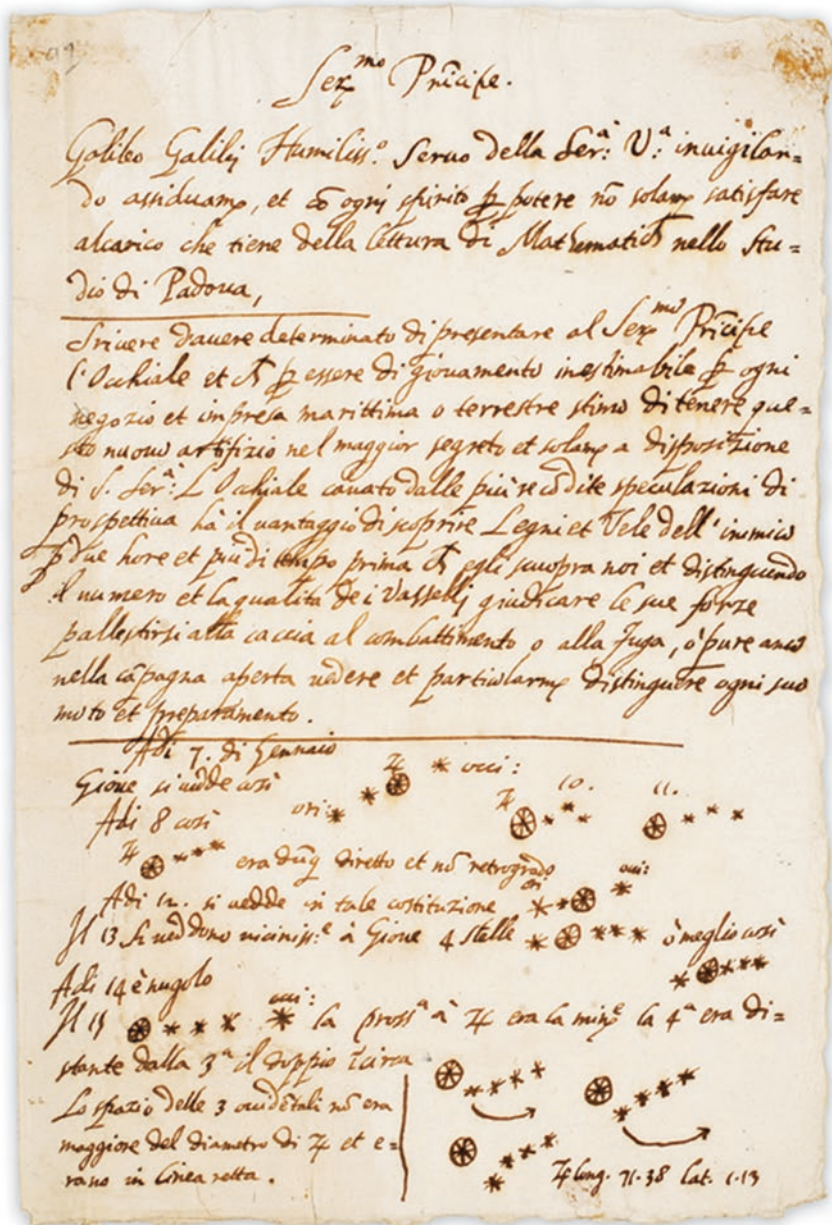 Ser.mo Prīcipe.
Galileo Galilej Humiliss.º Seruo della Ser:ª V:ª inuigilan=
do assiduam.e, et cō ogni spirito p̲ potere nō solam.e satisfare
alcarico che tiene della lettura di Mathematich nello Stu=
dio di Padoua,
Scriuere dauere determinato di presentare al Ser.mo Prīcipe
l'Occhiale et ch p̲ essere di giouamento inestimabile p̲ ogni
negozio et impresa marittima o terrestre stimo di tenere que=
sto nuouo artifizio nel maggior segreto et solam.e a disposizione
di S. Ser:ª L'Occhiale cauato dalle più recōdite speculazioni di
prospettiua hà il uantaggio di scoprire Legni et Vele dell'inimico
p̲ due hore et più di tempo prima ch egli scuopra noi et distinguendo
il numero et la qualità de i Vasselli giudicare le sue forze
pallestirsi alla caccia al combattimento o alla fuga, ò pure anco
nella cāpagna aperta uedere et particolarm.e distinguere ogni suo
moto et preparamento.
Adì 7. di Gennaio
Gioue si uedde così ♃ * occi:
Adì 8 così ori: * ♃ 10. 11.
♃ era dūq̄ diretto et nō retrogrado
Adì 12. si uedde in tale costituzione ori occi:
Il 13 si ueddono uiciniss:e à Gioue 4 stelle ò meglio così
Adì 14 è nugolo
Il 15 occi: la pross.ª à ♃ era la min.e la 4.ª era di=
stante dalla 3.ª il doppio ī circa
Lo spazio delle 3 occidētali nō era
maggiore del diametro di ♃ et e=
rano in linea retta.
♃ long. 71.38 lat. 1.13